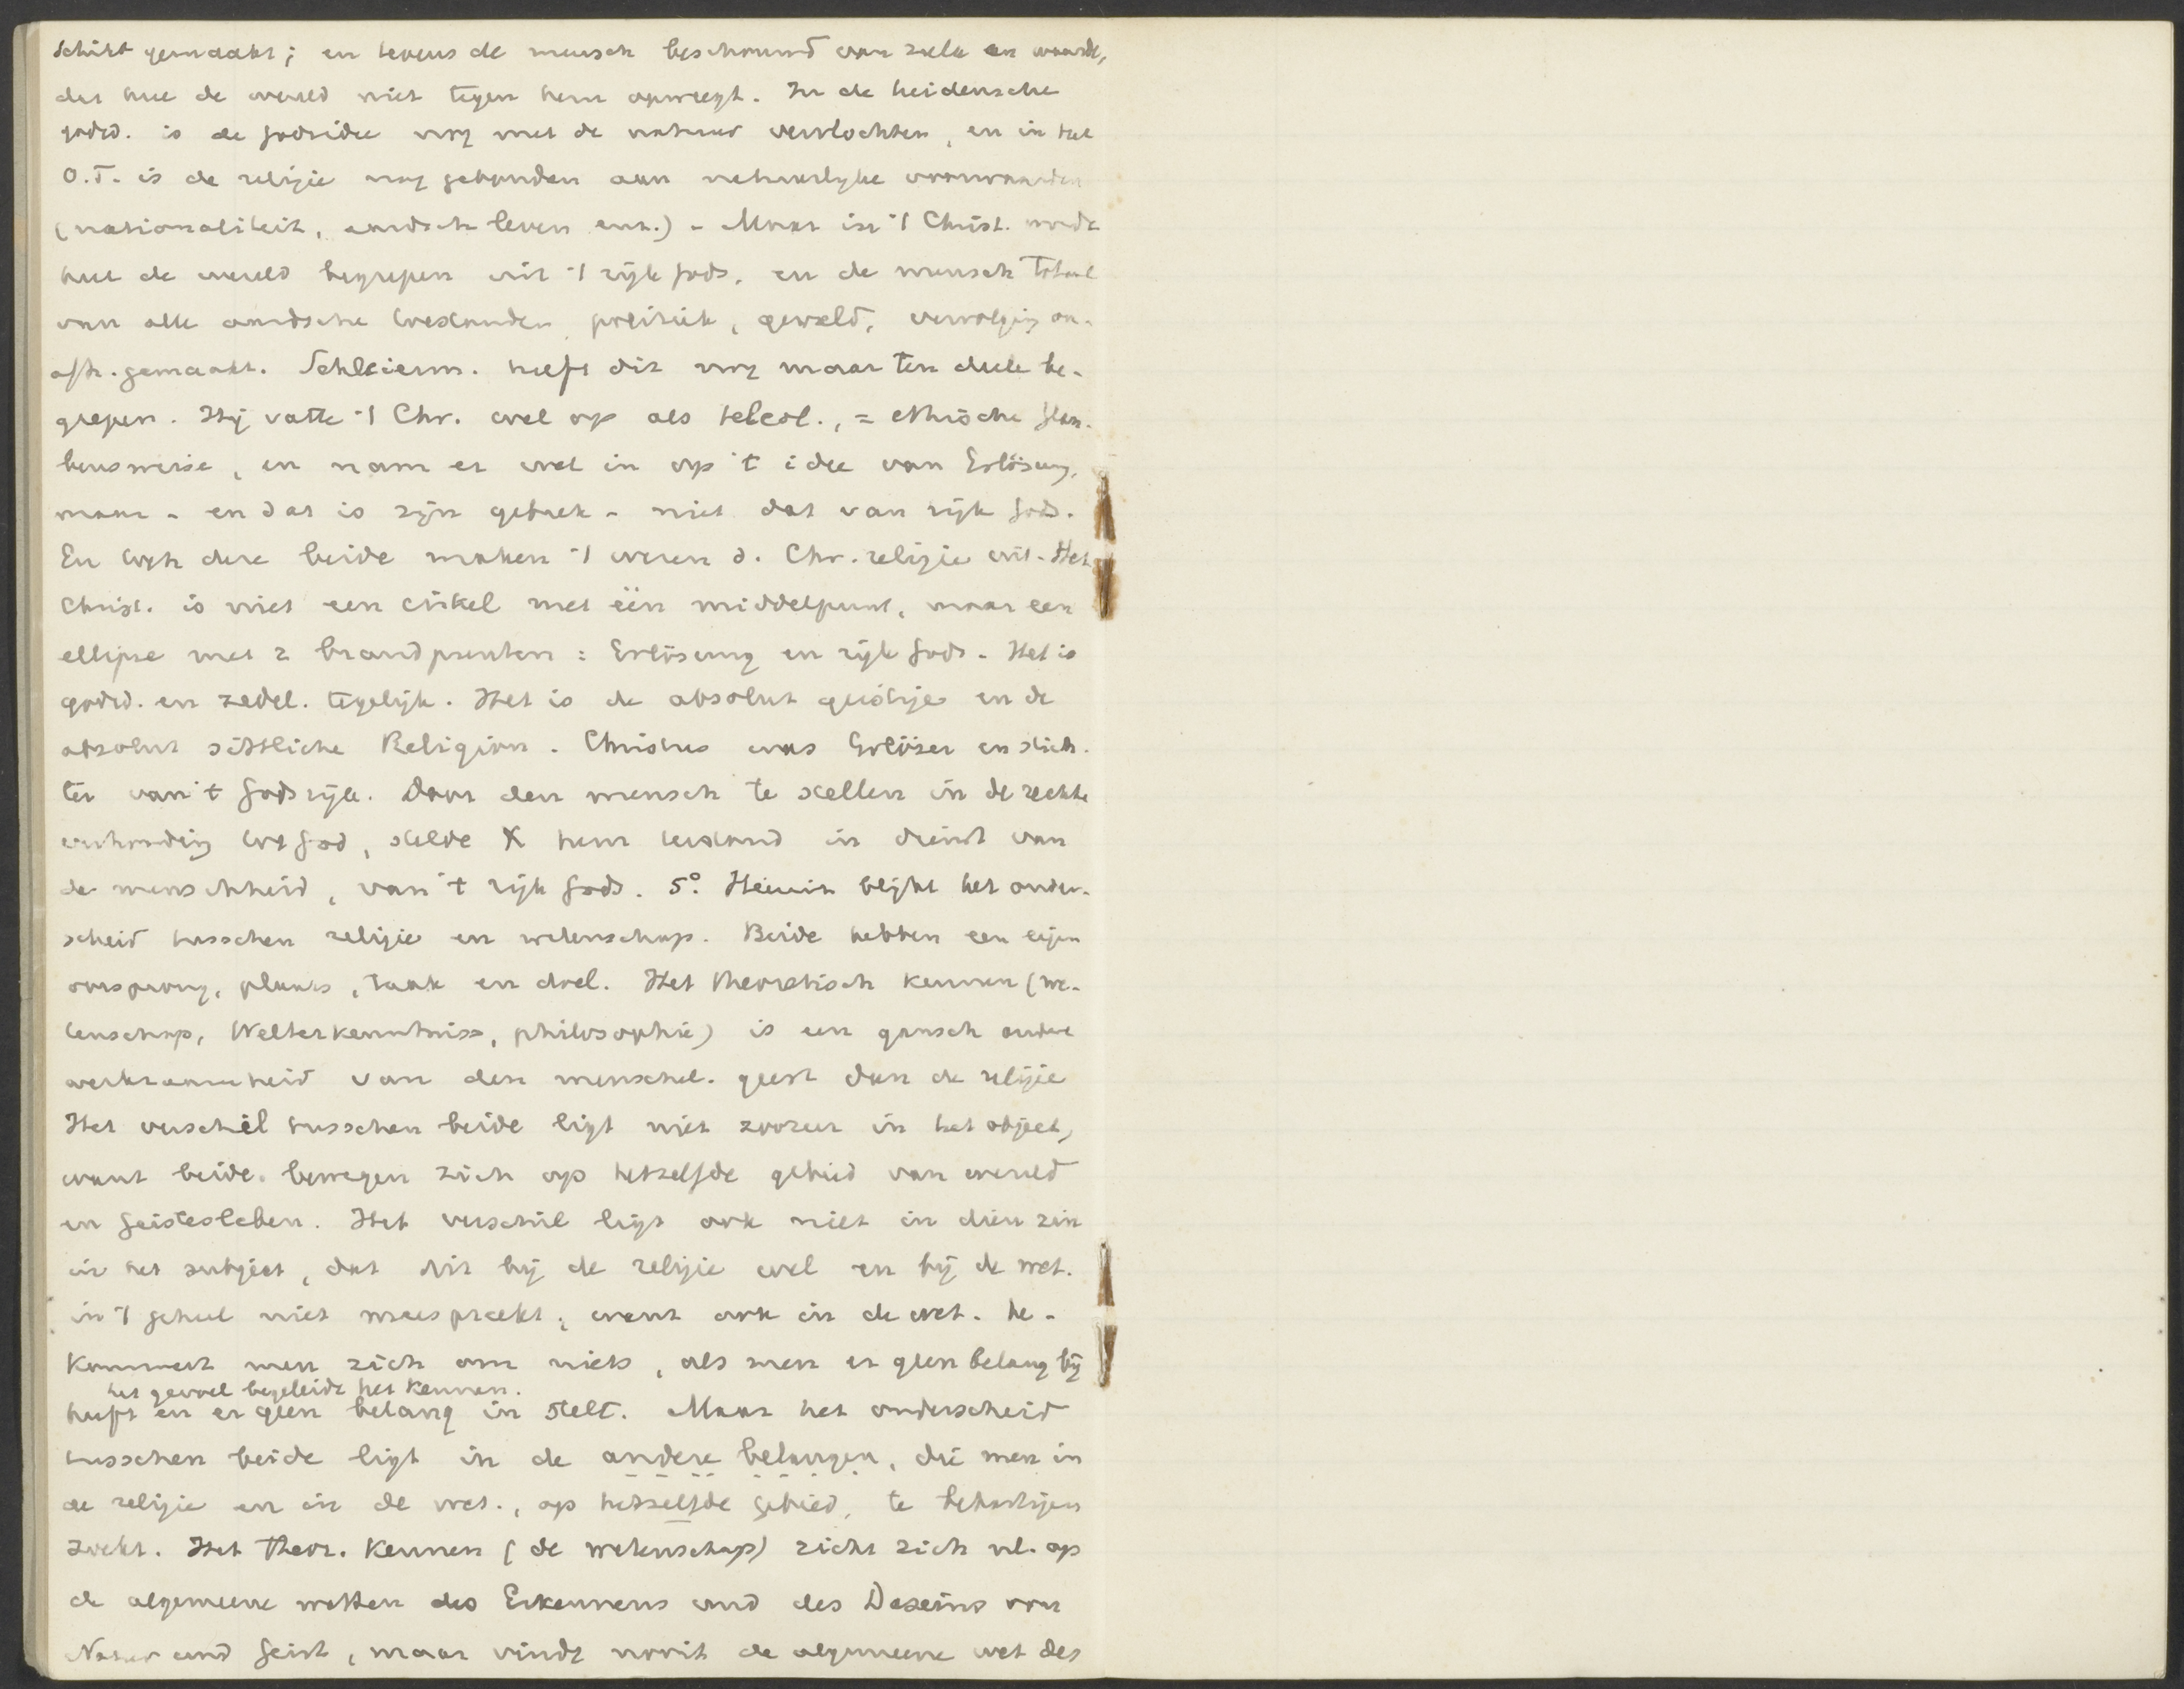 schikt gemaakt; en tevens de mensch beschouwd van zulk een waarde,
dat heel de wereld niet tegen hem opweegt. In de heidensche
godsd. is de godsidee nog met de natuur vervlochten, en in het
O.T. is de religie nog gebonden aan natuurlyke voorwaarden
(nationaliteit, aardsch leven enz.) - Maar in 't Christ. wordt
heel de wereld begrepen uit 't rijk Gods, en de mensch totaal
van alle aardsche toestanden, politiek, geweld, vervolging on-
afh. gemaakt. Schleierm. heeft dit nog maar ten deele be-
grepen. Hij vatte 't Chr. wel op als teleol., = ethische Glau-
bensweise, en nam er wel in op 't idee van Erlösung,
maar - en dat is zijn gebrek - niet dat van rijk Gods.
En toch deze beide maken 't wezen d. Chr. religie uit. Het
Christ. is niet een cirkel met één middelpunt, maar een
ellipse met 2 brandpunten: Erlösung en rijk Gods. Het is
godsd. en zedel. tegelijk. Het is de absolut geistige en de
absolut sittliche Religion. Christus was Erlöser en stich-
ter van 't Godsrijk. Door den mensch te stellen in de rechte
verhouding tot God, stelde X hem terstond in dienst van
de menschheid, van 't rijk Gods. 5° Hieruit blijkt het onder-
scheid tusschen religie en wetenschap. Beide hebben een eigen
oorsprong, plaats, taak en doel. Het theoretisch kennen (we-
tenschap, Welterkenntniss, philosophie) is een gansch andere
werkzaamheid van den menschel. geest dan de religie
Het verschil tusschen beide ligt niet zoozeer in het object,
want beide bewegen zich op hetzelfde gebied van wereld
en Geistesleben. Het verschil ligt ook niet in dien zin
in het subject, dat dit bij de religie wel en bij de wet.
in 't geheel niet meespreekt; want ook in de wet. be-
kommert men zich om niets, als men er geen belang bij
het gevoel begeleidt het kennen.
heeft en er geen belang in stelt. Maar het onderscheid
tusschen beide ligt in de andere belangen, die men in
de religie en in de wet., op hetzelfde gebied, te behartigen
zoekt. Het theor. kennen (de wetenschap) richt zich nl. op
de algemeene wetten des Erkennens und des Daseins von
Natur und Geist, maar vindt nooit de algemeene wet des